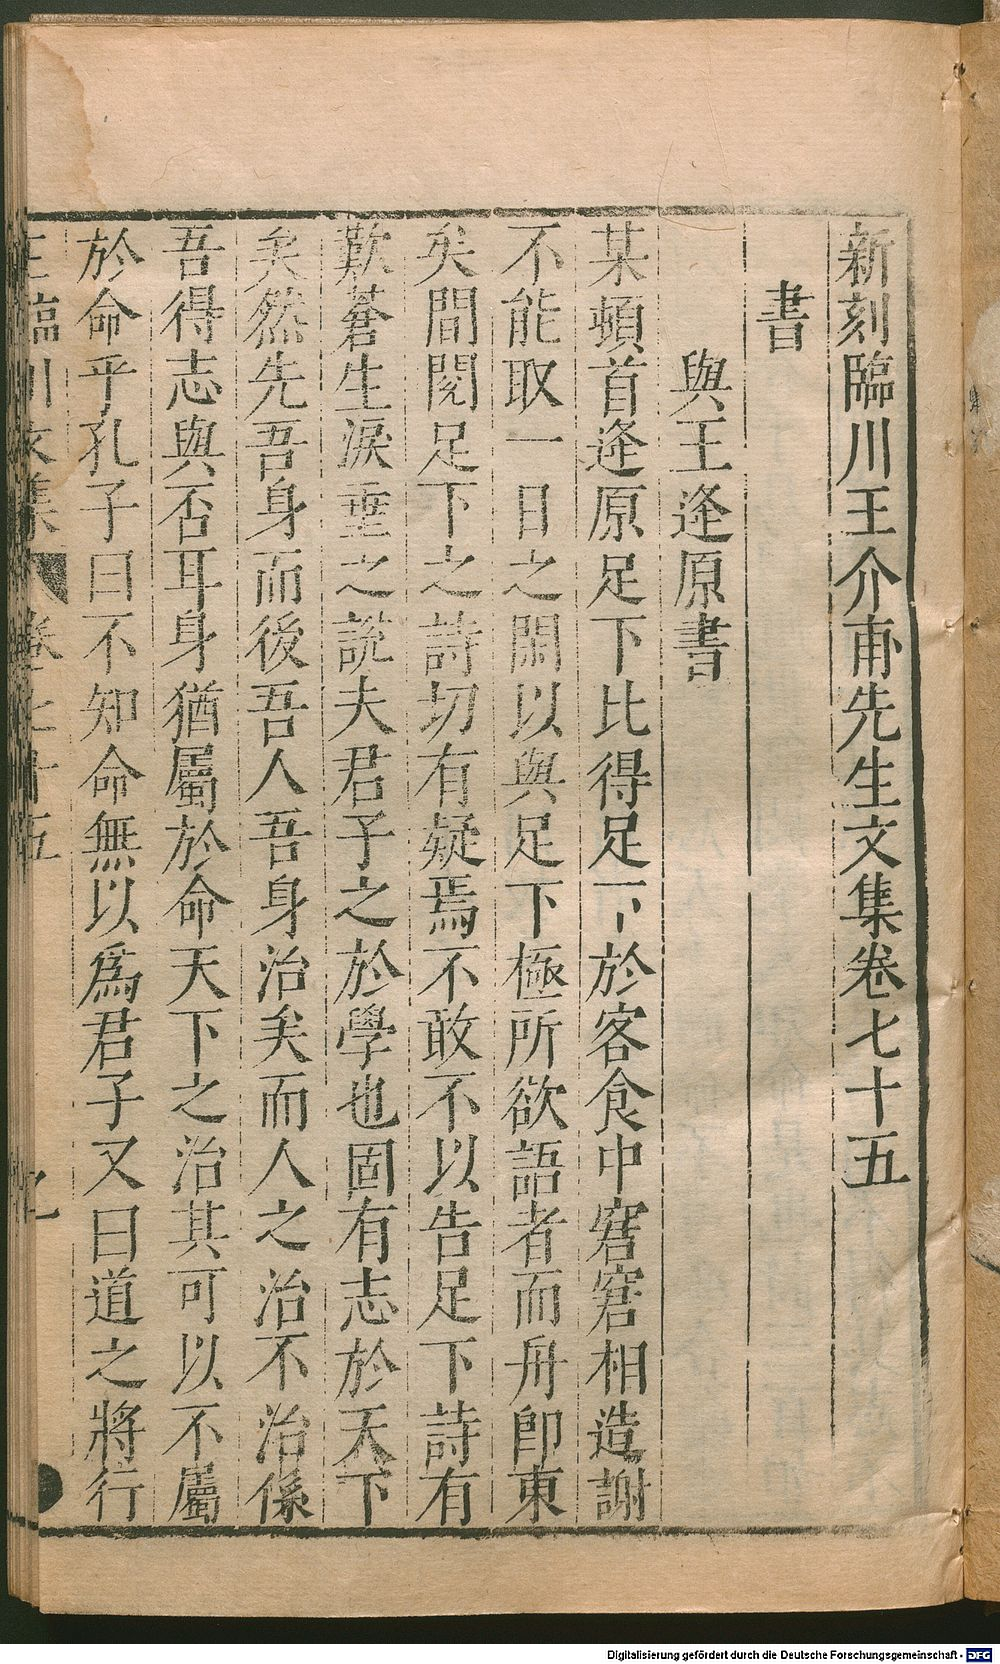 新刻臨川王介甫先生文集卷七十五
書
與王逢原書
某頓首逢原足下比得足下於客食中窘窘相造謝
不能取一日之閑以與足下極所欲語者而舟即東
矣間閱足下之詩切有疑焉不敢不以告足下詩有
歎蒼生淚垂之說夫君子之於學也固有志於天下
矣然先吾身而後吾人吾身治矣而人之治不治係
吾得志與否耳身猶屬於命天下之治其可以不屬
於命乎孔子曰不知命無以爲君子又曰道之將行
王臨川文集 卷七十五
Digitalisierung gefördert durch die Deutsche Forschungsgemeinschaft - DFG